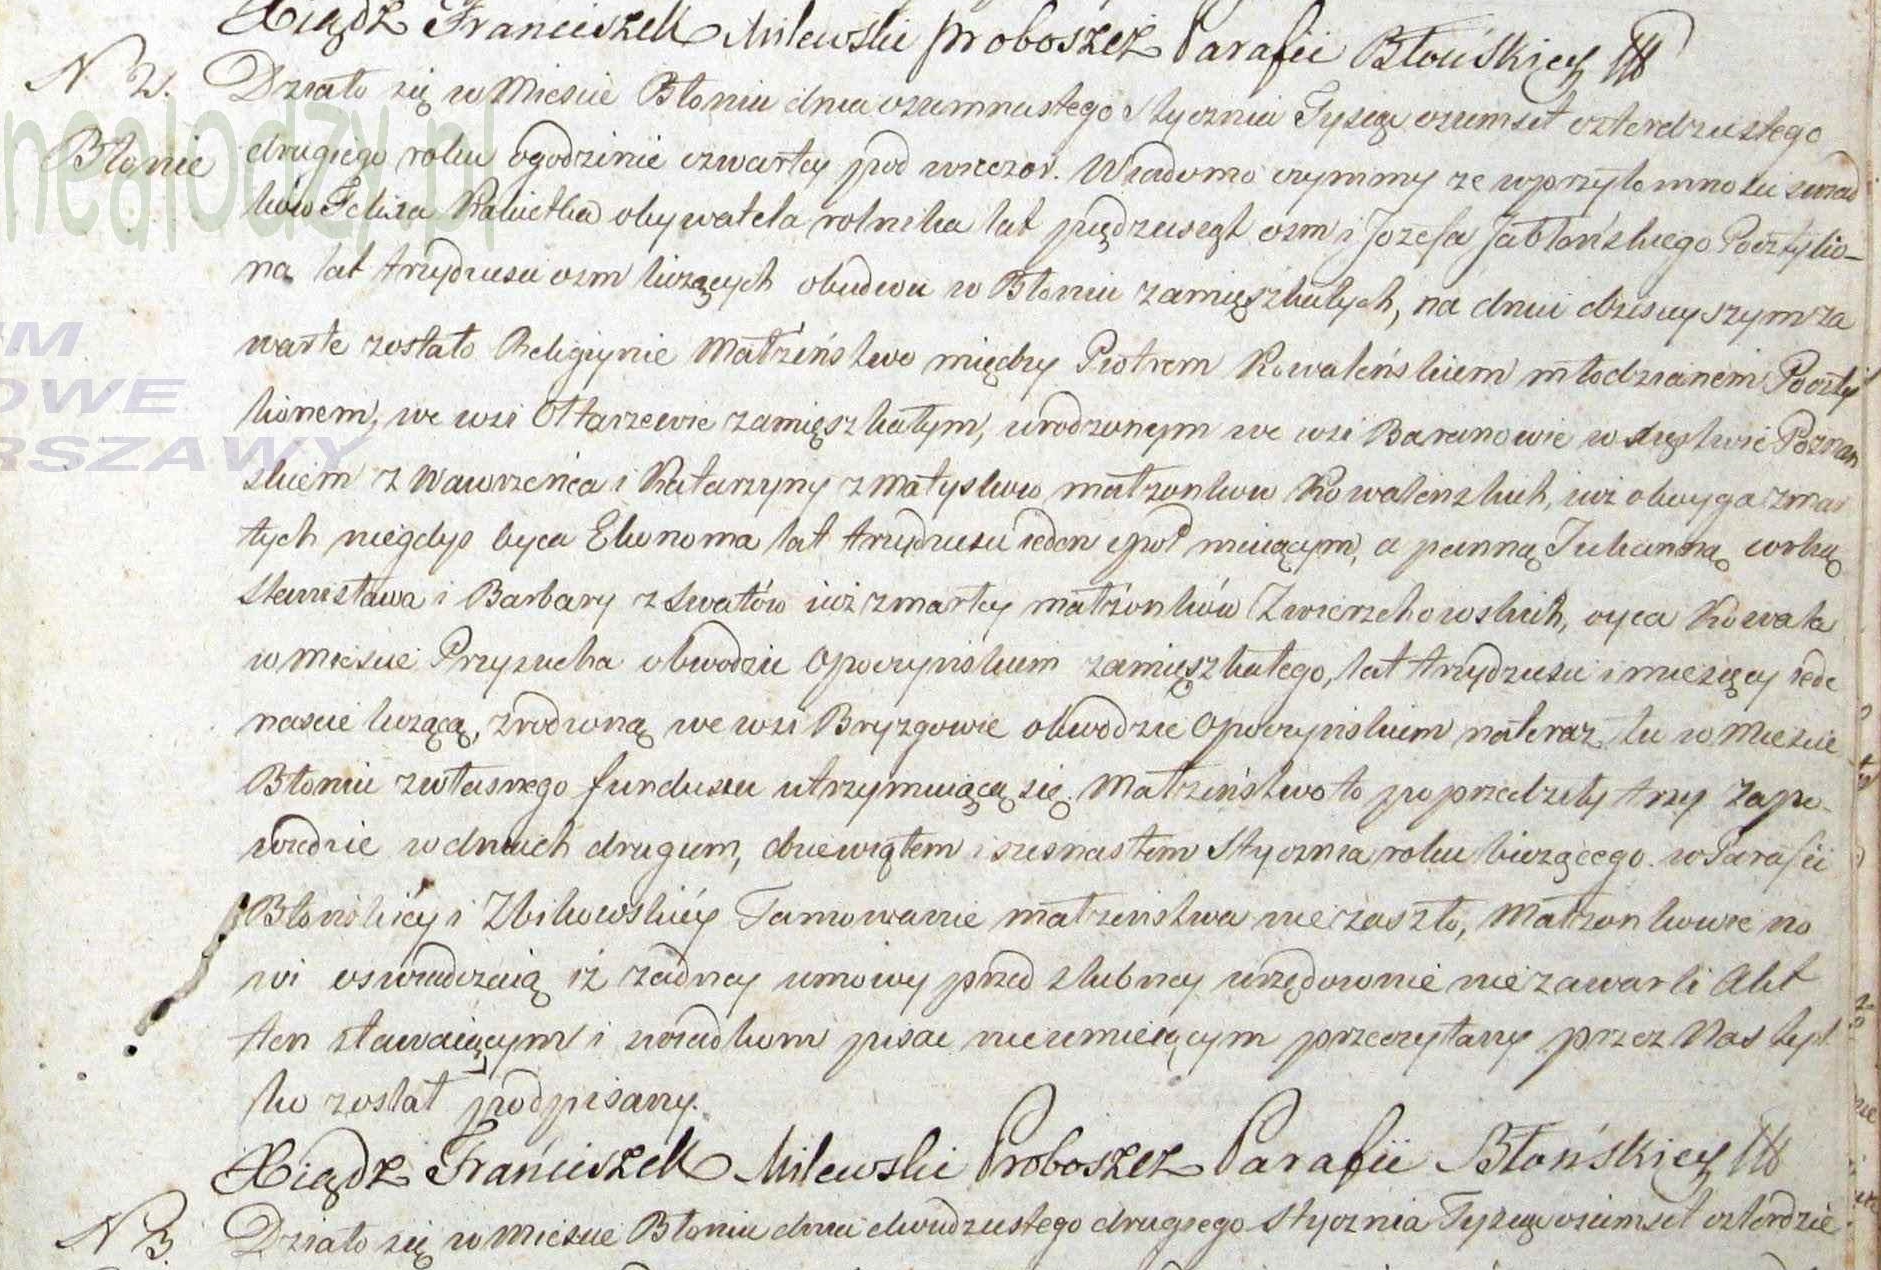 Xiądz Franciszek Milewski proboszcz Parafii Błońskiey
N 2. Działo się w Miescie Błoniu dnia osumnastego Stycznia Tysiąc osumset czterdziestego
Błonie drugiego roku ogodzinie czwartey pod wieczor. Wiadomo czynimy ze wprzytomnosci swiad
ków Felixa obywatela rolnika lat piędziesiąt osm i Jozefa Jabłońskiego Pocztylio-
na lat trzydziesci osm liczących obudwu w Błoniu zamięszkałych, na dniu dzisieyszym za
warte zostało Religiynie Małżeństwo między Piotrem Kowaleńskiem młodzianem Poczty
lionem, we wsi Ołtarzewie zamięszkałym, urodzonym we wsi Baranowie w Xięstwie Poznań
skiem z Wawrzeńca i Katarzyny z Matysków małżonków Kowaleńskich, iuż obuyga zmar
łych niegdyś oyca Ekonoma lat trzydziesci ieden i poł maiącym, a panną Julianną corką
Stanisława i Barbary z Swatów iuż zmarłey małżonków Zwierzchowskich, oyca Kowala
w miescie Przysucha obwodzie Opoczyńskiem zamięszkałego, lat trzydziesci i miesięcy iede
nascie liczącą, zrodzoną we wsi Bryzgowie obwodzie Opoczyńskiem nateraz tu w Miescie
Błoniu zwłasnego funduszu utrzymuiącą się. Małżeństwo to poprzedziły trzy Zapo-
wiedzie w dniach drugiem, dziewiątem i szesnastem Stycznia roku bieżącego. w Parafii
Błońskiey i Zbikowskiey Tamowanie małżeństwa nie zaszło, Małzonkowie no
wi oswiadczaią iż żadney umowy przed slubney urzędownie nie zawarli Akt
ten stawaiącym i swiadkom pisać nieumieiącym przeczytany przez Nas tyl
ko został podpisany.
Xiądz Franciszek Milewski Proboszcz Parafii Błońskiey
N 3. Działo się w Miescie Błoniu dnia dwudziestego drugiego Stycznia Tysiąc osiemset czterdzie
nealodzy.pl
OWE
RSZAWY